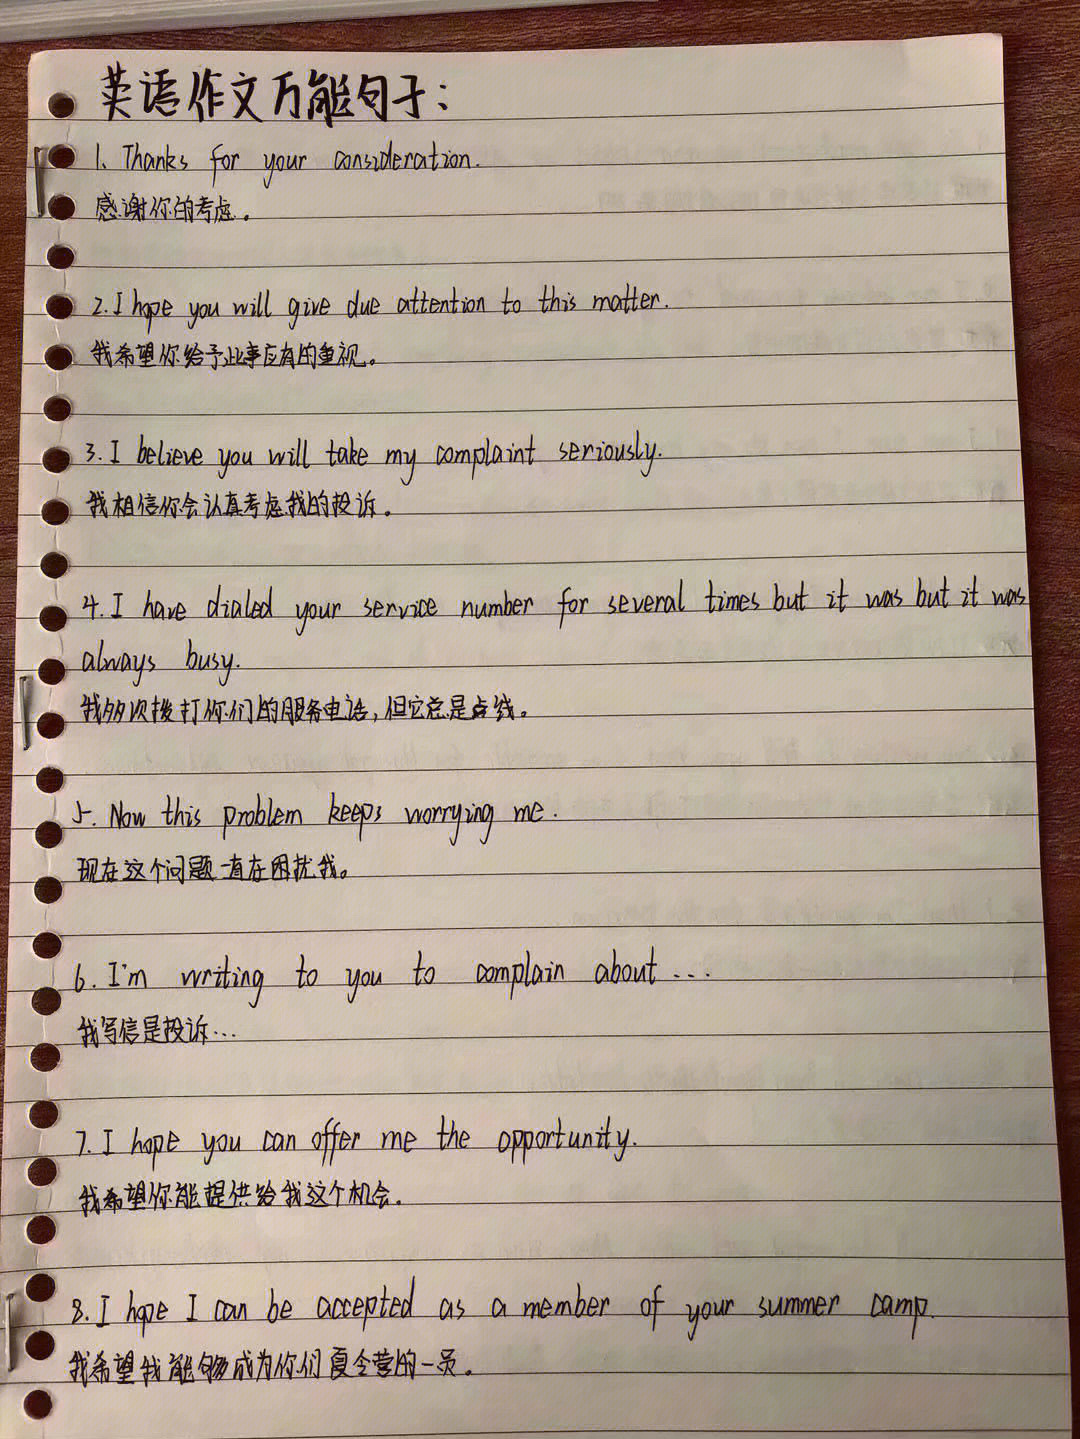 英语作文万能句子:
1. Thanks for your consideration.
感谢你的考虑。
2. I hope you will give due attention to this matter.
我希望你给予此事应有的重视。
3. I believe you will take my complaint seriously.
我相信你会认真考虑我的投诉。
4. I have dialed your service number for several times but it was but it was
always busy.
我多次拨打你们的服务电话,但它总是占线。
5. Now this problem keeps worrying me.
现在这个问题一直在困扰我。
6. I'm writing to you to complain about...
我写信是投诉...
7. I hope you can offer me the opportunity.
我希望你能提供给我这个机会。
8. I hope I can be accepted as a member of your summer camp.
我希望我能够成为你们夏令营的一员。